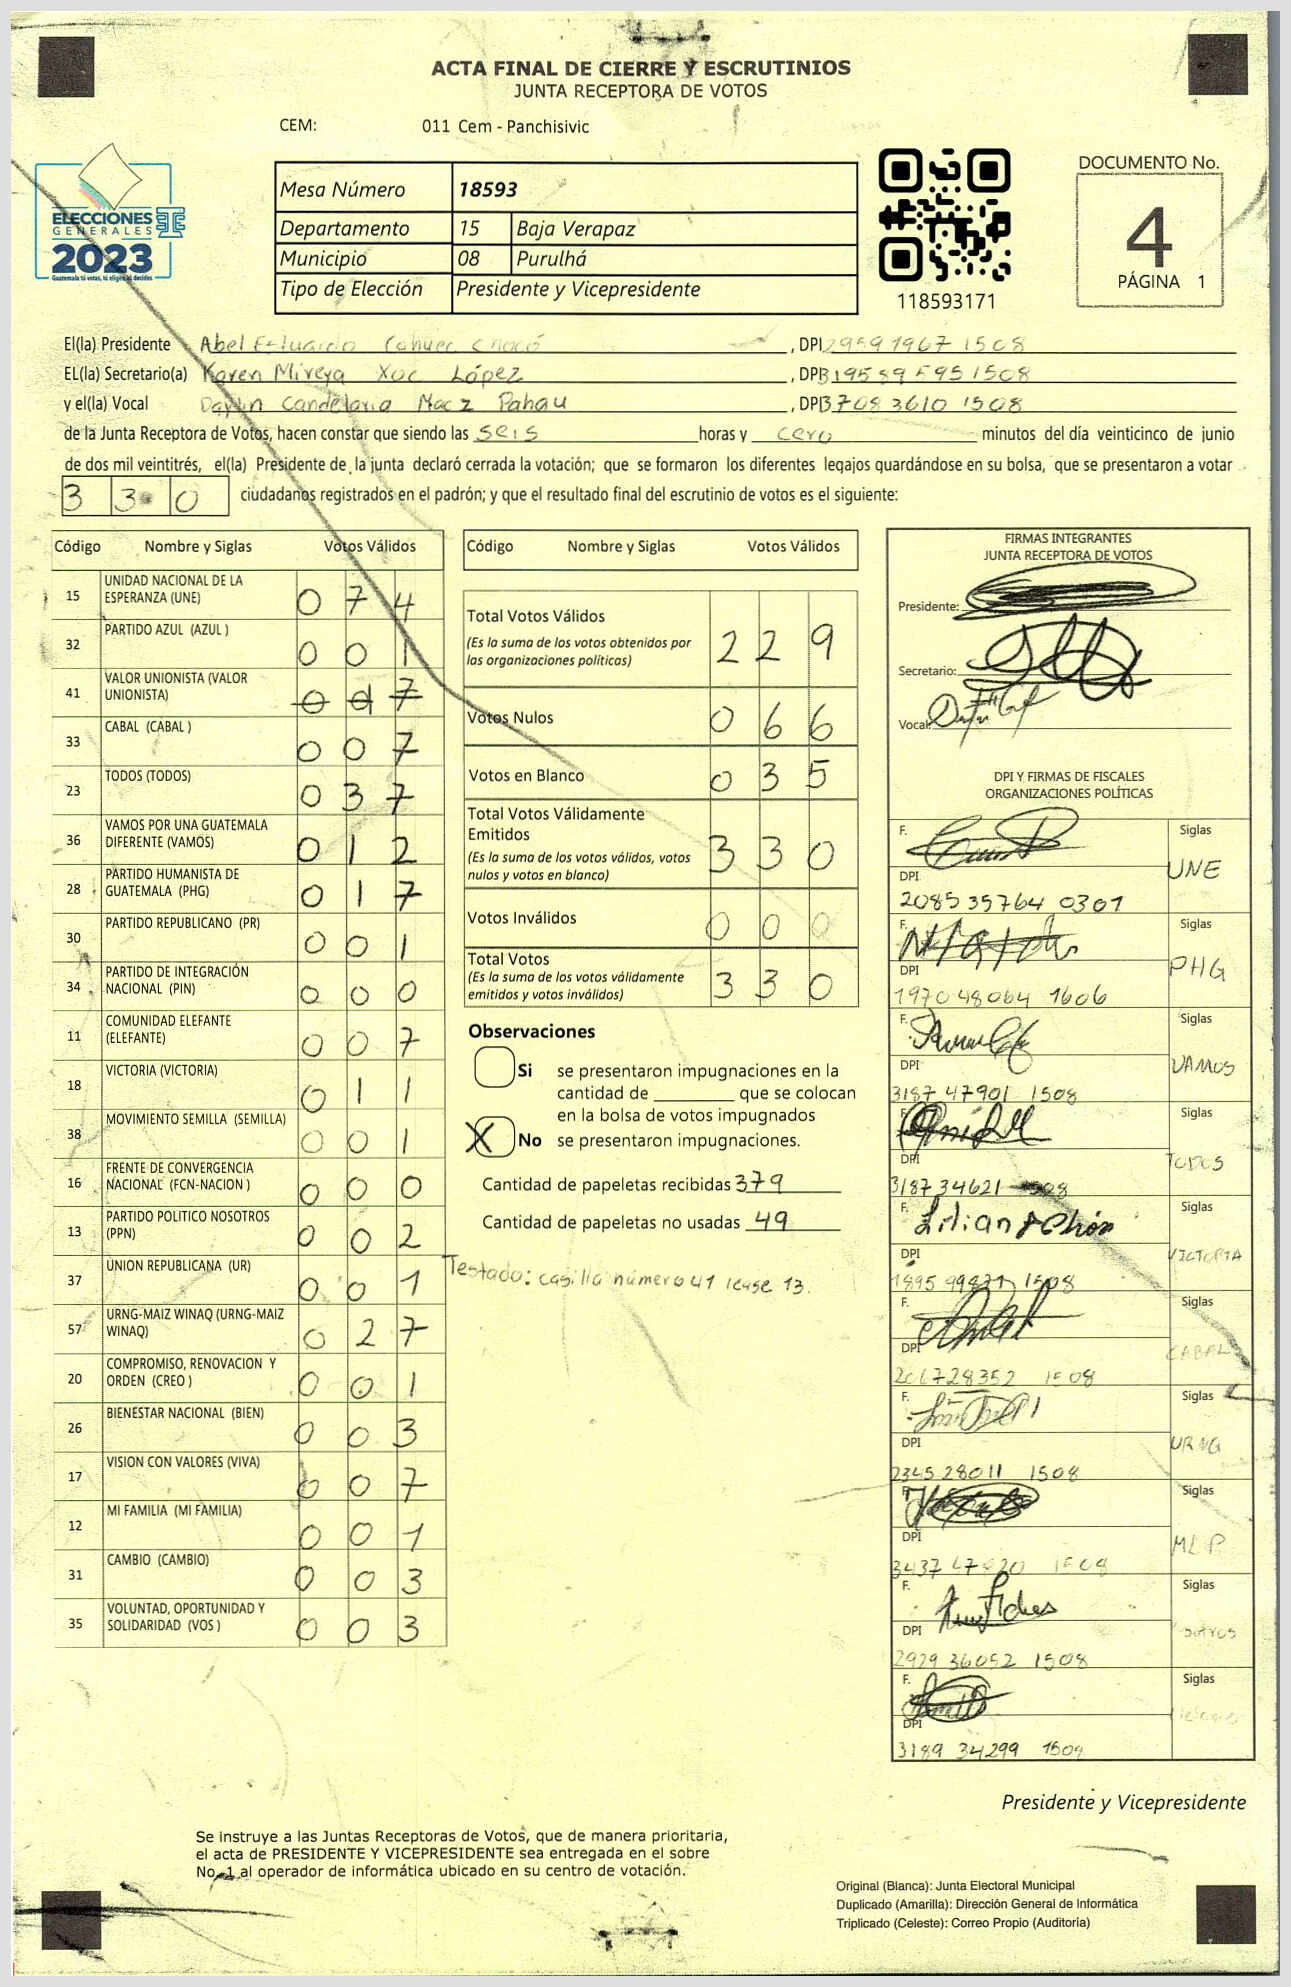 ACTA FINAL DE CIERRE Y ESCRUTINIOS
JUNTA RECEPTORA DE VOTOS
CEM: 011 Cem - Panchisivic
ELECCIONES
GENERALES
2023
Guatemala tú votas, tú eliges, tú decides
Mesa Número 18593
Departamento 15 Baja Verapaz
Municipio 08 Purulhá
Tipo de Elección Presidente y Vicepresidente
118593171
DOCUMENTO No.
4
PÁGINA 1
El(la) Presidente Abel Estuardo , DPI 29591967 1508
EL(la) Secretario(a) Karen Mireya Xuc López , DPI 1508
y el(la) Vocal Candelaria Macz Pahau , DPI 37083610 1508
de la Junta Receptora de Votos, hacen constar que siendo las seis horas y cero minutos del día veinticinco de junio
de dos mil veintitrés, el(la) Presidente de la junta declaró cerrada la votación; que se formaron los diferentes legajos quardándose en su bolsa, que se presentaron a votar
3 3 0 ciudadanos registrados en el padrón; y que el resultado final del escrutinio de votos es el siguiente:
Código Nombre y Siglas Votos Válidos
15 UNIDAD NACIONAL DE LA ESPERANZA (UNE) 0 7 4
32 PARTIDO AZUL (AZUL ) 0 0 1
41 VALOR UNIONISTA (VALOR UNIONISTA) 7
33 CABAL (CABAL ) 0 0 7
23 TODOS (TODOS) 0 3 7
36 VAMOS POR UNA GUATEMALA DIFERENTE (VAMOS) 0 1 2
28 PARTIDO HUMANISTA DE GUATEMALA (PHG) 0 1 7
30 PARTIDO REPUBLICANO (PR) 0 0 1
34 PARTIDO DE INTEGRACIÓN NACIONAL (PIN) 0 0 0
11 COMUNIDAD ELEFANTE (ELEFANTE) 0 0 7
18 VICTORIA (VICTORIA) 0 1 1
38 MOVIMIENTO SEMILLA (SEMILLA) 0 0 1
16 FRENTE DE CONVERGENCIA NACIONAL (FCN-NACION ) 0 0 0
13 PARTIDO POLITICO NOSOTROS (PPN) 0 0 2
37 UNION REPUBLICANA (UR) 0 0 1
57 URNG-MAIZ WINAQ (URNG-MAIZ WINAQ) 0 2 7
20 COMPROMISO, RENOVACION Y ORDEN (CREO ) 0 0 1
26 BIENESTAR NACIONAL (BIEN) 0 0 3
17 VISION CON VALORES (VIVA) 0 0 7
12 MI FAMILIA (MI FAMILIA) 0 0 1
31 CAMBIO (CAMBIO) 0 0 3
35 VOLUNTAD, OPORTUNIDAD Y SOLIDARIDAD (VOS ) 0 0 3
Código Nombre y Siglas Votos Válidos
Total Votos Válidos 2 2 9
(Es la suma de los votos obtenidos por
las organizaciones políticas)
Votos Nulos 0 6 6
Votos en Blanco 0 3 5
Total Votos Válidamente
Emitidos 3 3 0
(Es la suma de los votos válidos, votos
nulos y votos en blanco)
Votos Inválidos 0 0 0
Total Votos 3 3 0
(Es la suma de los votos válidamente
emitidos y votos inválidos)
Observaciones
Si se presentaron impugnaciones en la
cantidad de ________ que se colocan
en la bolsa de votos impugnados
X No se presentaron impugnaciones.
Cantidad de papeletas recibidas 379
Cantidad de papeletas no usadas 49
Testado: casilla número 41 lease 13.
FIRMAS INTEGRANTES
JUNTA RECEPTORA DE VOTOS
Presidente:
Secretario:
Vocal:
DPI Y FIRMAS DE FISCALES
ORGANIZACIONES POLÍTICAS
F. Siglas
DPI UNE
2085 35764 0301
F. Siglas
DPI PHG
1970 48064 1606
F. Siglas
DPI VAMOS
3187 47901 1508
F. Siglas
DPI TODOS
3187 34621
F. Lilian Siglas
DPI VICTORIA
1508
F. Siglas
DPI CABAL
1508
F. Siglas
DPI URNG
2345 28011 1508
F. Siglas
DPI MLP
1508
F. Siglas
DPI
2929 36052 1508
F. Siglas
DPI
3189 34299
Presidente y Vicepresidente
Se instruye a las Juntas Receptoras de Votos, que de manera prioritaria,
el acta de PRESIDENTE Y VICEPRESIDENTE sea entregada en el sobre
No. 1 al operador de informática ubicado en su centro de votación.
Original (Blanca): Junta Electoral Municipal
Duplicado (Amarilla): Dirección General de Informática
Triplicado (Celeste): Correo Propio (Auditoría)